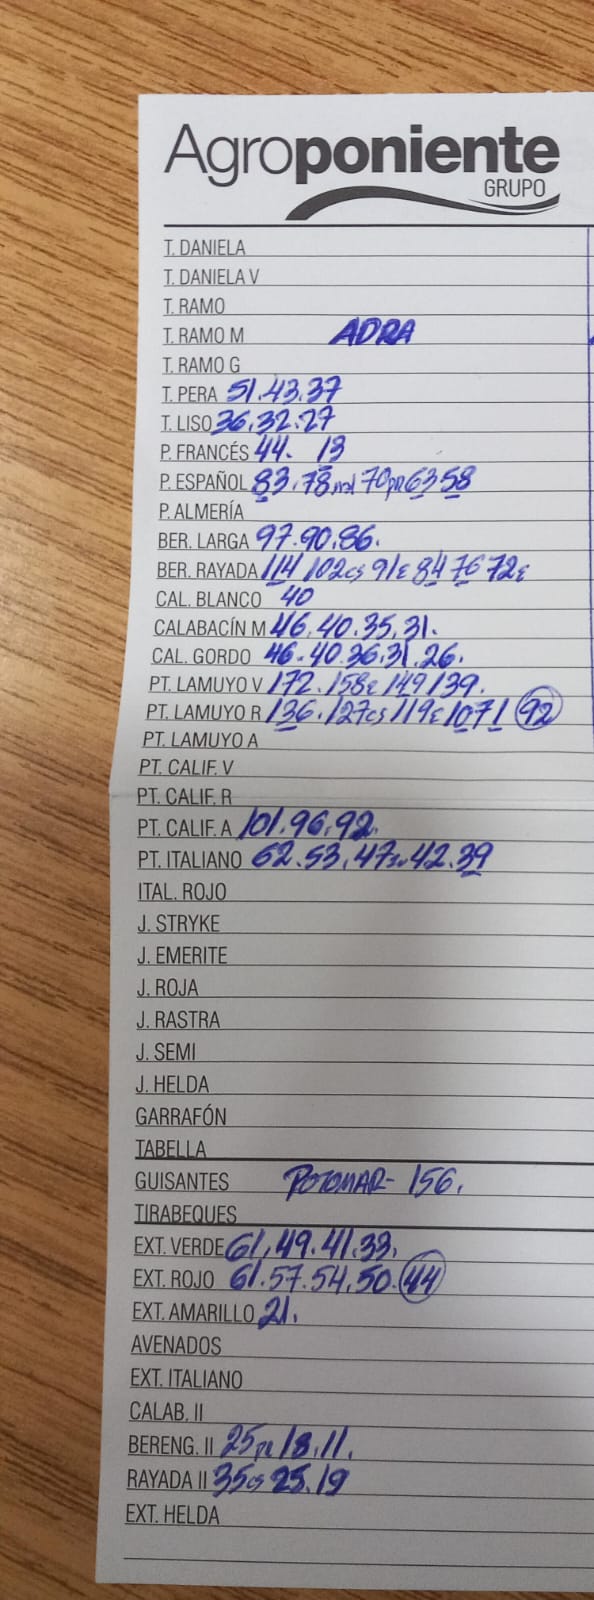 Agroponiente
GRUPO
T. DANIELA
T. DANIELA V
T. RAMO
T. RAMO M ADRA
T. RAMO G
T. PERA 51.43.37
T. LISO 36.32.27
P. FRANCÉS 44. 13
P. ESPAÑOL 83.78 nal 70 pr 63 58
P. ALMERÍA
BER. LARGA 97.90.86.
BER. RAYADA 114 102cs 91ε 84 76 72ε
CAL. BLANCO 40
CALABACÍN M 46.40.35.31.
CAL. GORDO 46.40.36.31.26.
PT. LAMUYO V 172.158ε 149 139.
PT. LAMUYO R 136.127cs 119ε 107 1 92
PT. LAMUYO A
PT. CALIF. V
PT. CALIF. R
PT. CALIF. A 101.96.92.
PT. ITALIANO 62.53.47 42.39
ITAL. ROJO
J. STRYKE
J. EMERITE
J. ROJA
J. RASTRA
J. SEMI
J. HELDA
GARRAFÓN
TABELLA
GUISANTES POTOMAR- 156.
TIRABEQUES
EXT. VERDE 61.49.41.33.
EXT. ROJO 61.57.54.50. 44
EXT. AMARILLO 21.
AVENADOS
EXT. ITALIANO
CALAB. II
BERENG. II 25pr 18.11.
RAYADA II 35cs 25.19
EXT. HELDA